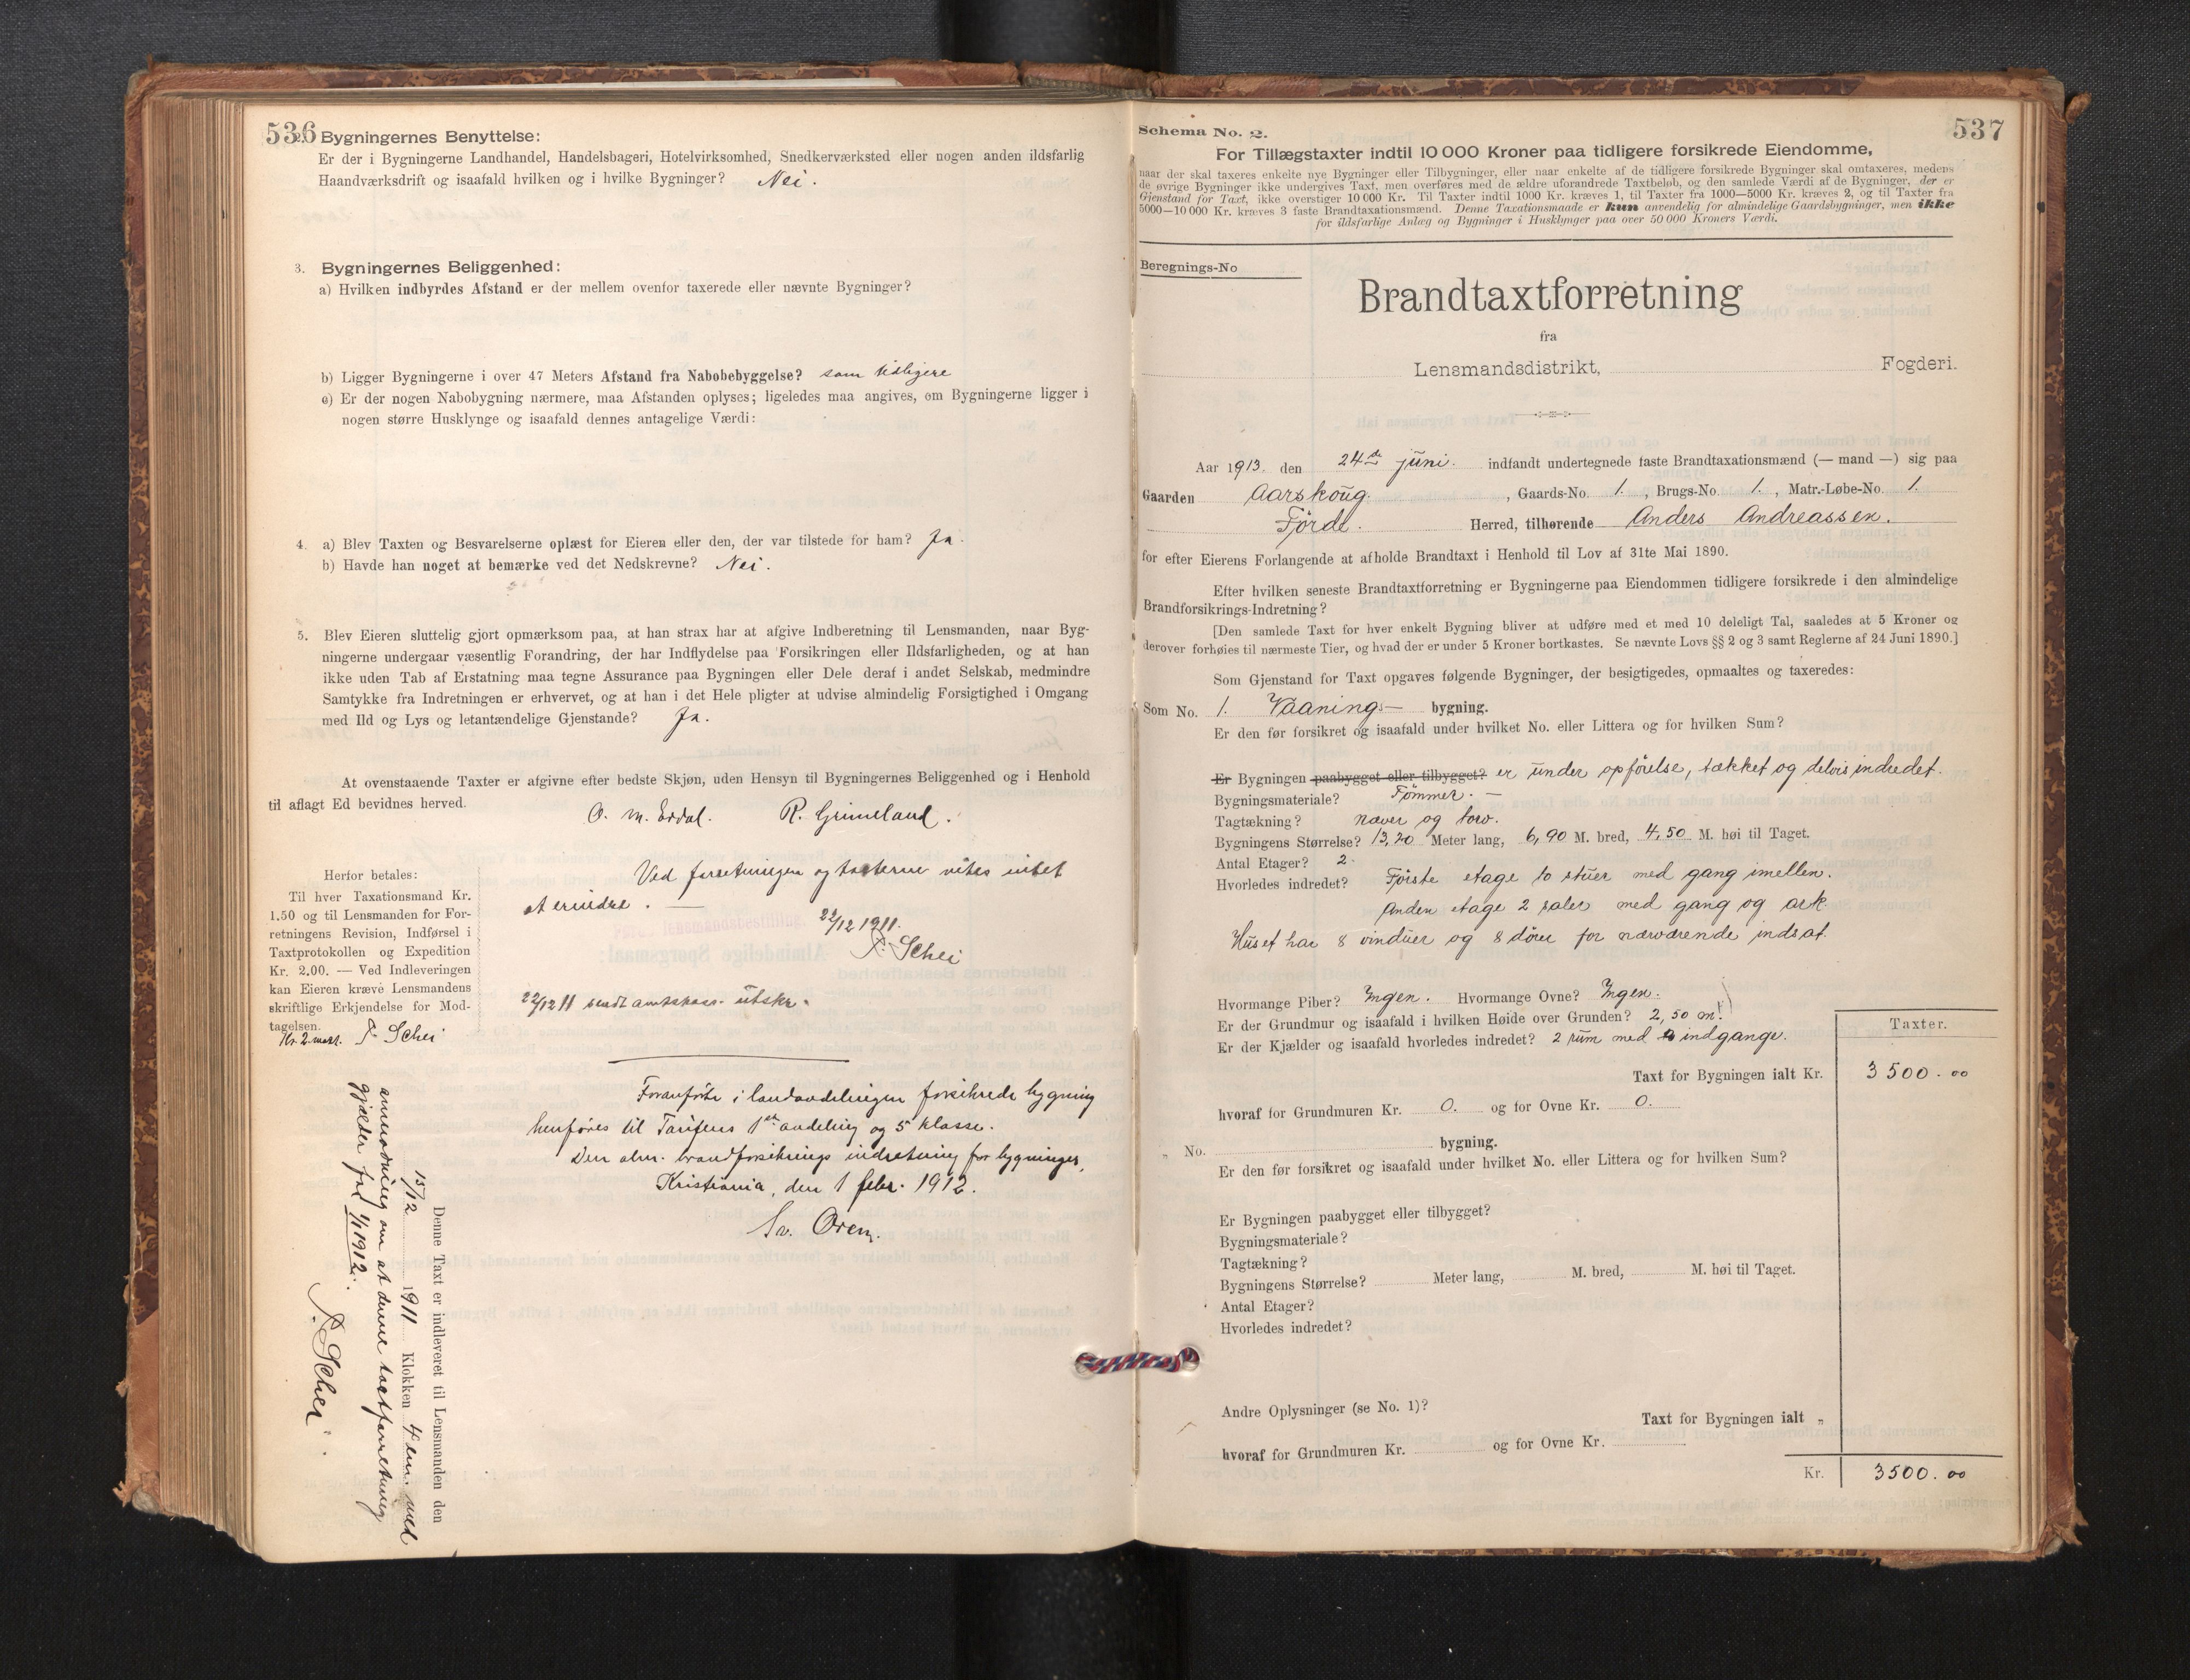 536
2. Bygningernes Benyttelse:
Er der i Bygningerne Landhandel, Handelsbageri, Hotelvirksomhed, Snedkerværksted eller nogen anden ildsfarlig
Haandværksdrift og isaafald hvilken og i hvilke Bygninger? Nei.
3. Bygningernes Beliggenhed:
a) Hvilken indbyrdes Afstand er der mellem ovenfor taxerede eller nævnte Bygninger?
b) Ligger Bygningerne i over 47 Meters Afstand fra Nabobebyggelse? som tidligere
c) Er der nogen Nabobygning nærmere, maa Afstanden oplyses; ligeledes maa angives, om Bygningerne ligger i
nogen større Husklynge og isaafald dennes antagelige Værdi:
4. a) Blev Taxten og Besvarelserne oplæst for Eieren eller den, der var tilstede for ham? Ja.
b) Havde han noget at bemærke ved det Nedskrevne? Nei.
5. Blev Eieren sluttelig gjort opmærksom paa, at han strax har at afgive Indberetning til Lensmanden, naar Byg-
ningerne undergaar væsentlig Forandring, der har Indflydelse paa Forsikringen eller Ildsfarligheden, og at han
ikke uden Tab af Erstatning maa tegne Assurance paa Bygningen eller Dele deraf i andet Selskab, medmindre
Samtykke fra Indretningen er erhvervet, og at han i det Hele pligter at udvise almindelig Forsigtighed i Omgang
med Ild og Lys og letantændelige Gjenstande? Ja.
At ovenstaaende Taxter er afgivne efter bedste Skjøn, uden Hensyn til Bygningernes Beliggenhed og i Henhold
til aflagt Ed bevidnes herved.
O. M. Erdal. R. Grimeland.
Ved forretningen og taxterne vites intet
at erindre. —
22/12 1911.
P. Schei
22/12 11 sendt amtskass. utskr.
Herfor betales:
Til hver Taxationsmand Kr.
1.50 og til Lensmanden for For-
retningens Revision, Indførsel i
Taxtprotokollen og Expedition
Kr. 2.00. — Ved Indleveringen
kan Eieren kræve Lensmandens
skriftlige Erkjendelse for Mod-
tagelsen.
Kr. 2 mott. P. Schei
Foranførte i landavdelingen forsikrede bygning
henføres til Tarifens 1ste avdeling og 5 klasse.
Den alm. brandforsikrings indretning for bygninger,
Kristiania, den 1 febr. 1912.
Sv. Oren.
Denne Taxt er indleveret til Lensmanden den
15/12 1911 Klokken 4 em. med
anmodning om at denne taxtforretning
gjælder fra 1/1 1912.
P. Schei.
537
Schema No. 2.
For Tillægstaxter indtil 10 000 Kroner paa tidligere forsikrede Eiendomme,
naar der skal taxeres enkelte nye Bygninger eller Tilbygninger, eller naar enkelte af de tidligere forsikrede Bygninger skal omtaxeres, medens
de øvrige Bygninger ikke undergives Taxt, men overføres med de ældre uforandrede Taxtbeløb, og den samlede Værdi af de Bygninger, der er
Gjenstand for Taxt, ikke overstiger 10 000 Kr. Til Taxter indtil 1000 Kr. kræves 1, til Taxter fra 1000—5000 Kr. kræves 2, og til Taxter fra
5000—10 000 Kr. kræves 3 faste Brandtaxationsmænd. Denne Taxationsmaade er kun anvendelig for almindelige Gaardsbygninger, men ikke
for ildsfarlige Anlæg og Bygninger i Husklynger paa over 50 000 Kroners Værdi.
Beregnings-No
Brandtaxtforretning
fra
Lensmandsdistrikt, Fogderi.
Aar 1913. den 24de juni. indfandt undertegnede faste Brandtaxationsmænd (— mand —) sig paa
Gaarden Aarskoug. , Gaards-No. 1. , Brugs-No. 1. , Matr.-Løbe-No. 1.
Førde. Herred, tilhørende Anders Andreassen.
for efter Eierens Forlangende at afholde Brandtaxt i Henhold til Lov af 31te Mai 1890.
Efter hvilken seneste Brandtaxtforretning er Bygningerne paa Eiendommen tidligere forsikrede i den almindelige
Brandforsikrings-Indretning?
[Den samlede Taxt for hver enkelt Bygning bliver at udføre med et med 10 deleligt Tal, saaledes at 5 Kroner og
derover forhøies til nærmeste Tier, og hvad der er under 5 Kroner bortkastes. Se nævnte Lovs §§ 2 og 3 samt Reglerne af 24 Juni 1890.]
Som Gjenstand for Taxt opgaves følgende Bygninger, der besigtigedes, opmaaltes og taxeredes:
Som No. 1. Vaanings— bygning.
Er den før forsikret og isaafald under hvilket No. eller Littera og for hvilken Sum?
Er Bygningen paabygget eller tilbygget? er under opførelse, tækket og delvis indredet.
Bygningsmateriale? Tømmer. —
Tagtækning? næver og torv.
Bygningens Størrelse? 13,20 Meter lang, 6,90 M. bred, 4,50 M. høi til Taget.
Antal Etager? 2.
Hvorledes indredet? Første etage to stuer med gang imellen.
Anden etage 2 saler med gang og ark.
Huset har 8 vinduer og 8 dører for nærværende indsat.
Hvormange Piber? Ingen. Hvormange Ovne? Ingen.
Er der Grundmur og isaafald i hvilken Høide over Grunden? 2,50 m.
Er der Kjælder og isaafald hvorledes indredet? 2 rum med indgange.
Taxter.
Taxt for Bygningen ialt Kr. 3500.00
hvoraf for Grundmuren Kr. 0. og for Ovne Kr. 0.
„ No. bygning.
Er den før forsikret og isaafald under hvilket No. eller Littera og for hvilken Sum?
Er Bygningen paabygget eller tilbygget?
Bygningsmateriale?
Tagtækning?
Bygningens Størrelse? Meter lang, M. bred, M. høi til Taget.
Antal Etager?
Hvorledes indredet?
Andre Oplysninger (se No. 1)?
Taxt for Bygningen ialt „
hvoraf for Grundmuren Kr. og for Ovne Kr.
Kr. 3500.00